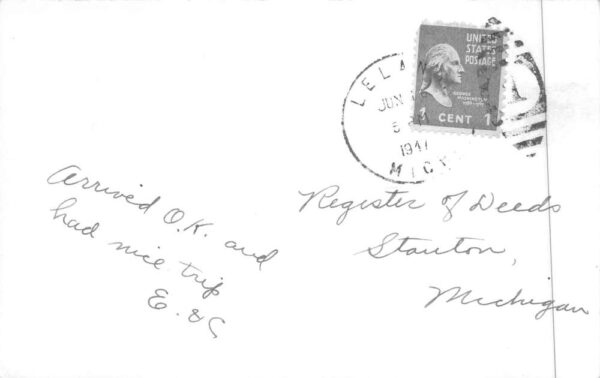 LELAN
JUN
5
1941
MICH
UNITED
STATES
POSTAGE
GEORGE
WASHINGTON
1 CENT 1
Arrived O.K. and
had nice trip
E. &
Register of Deeds
Stanton,
Michigan